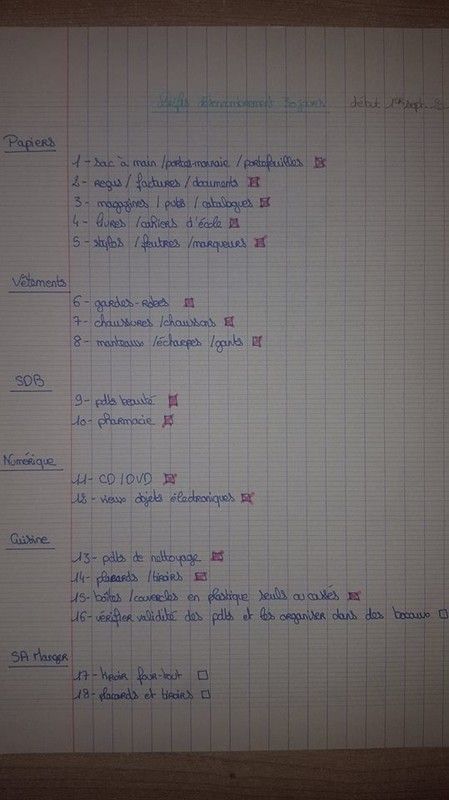 désencombrement 30 jours début 1er sept.
Papiers
1- sac à main / portes-monnaie / portefeuilles
2- reçus / factures / documents
3- magazines / pubs / catalogues
4- livres / cahiers d'école
5- stylos / feutres / marqueurs
Vêtements
6- gardes-robes
7- chaussures / chaussons
8- manteaux / écharpes / gants
SDB
9- pdts beauté
10- pharmacie
Numérique
11- CD / DVD
12- vieux objets électroniques
Cuisine
13- pdts de nettoyage
14- placards / tiroirs
15- boîtes / couvercles en plastique seuls ou cassés
16- vérifier validité des pdts et les organiser dans des bocaux
SA Manger
17- tiroir four-tout
18- placards et tiroirs